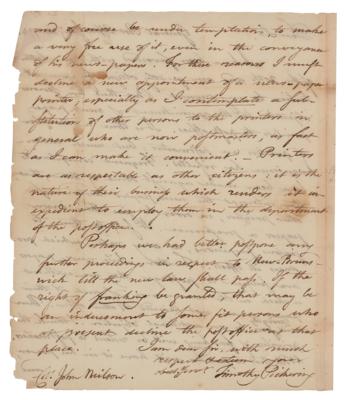 and of course be under temptation to make
a very free use of it, even in the conveyance
of his news-papers. For these reasons I must
decline a new appointment of a news-paper
printer, especially as I contemplate a sub-
stitution of other persons to the printers in
general who are now postmasters, as fast
as I can make it convenient. – Printers
are as respectable as other citizens; it is the
nature of their business which renders it in-
expedient to employ them in the department
of the post office.
Perhaps we had better postpone any
further proceedings in respect to New Bruns-
wick till the new law shall pass. If the
right of franking be granted, that may be
an inducement to some fit persons who
at present decline the post office at that
place. I am Sir, with much
respect your
Timothy Pickering
Col: John Neilson.